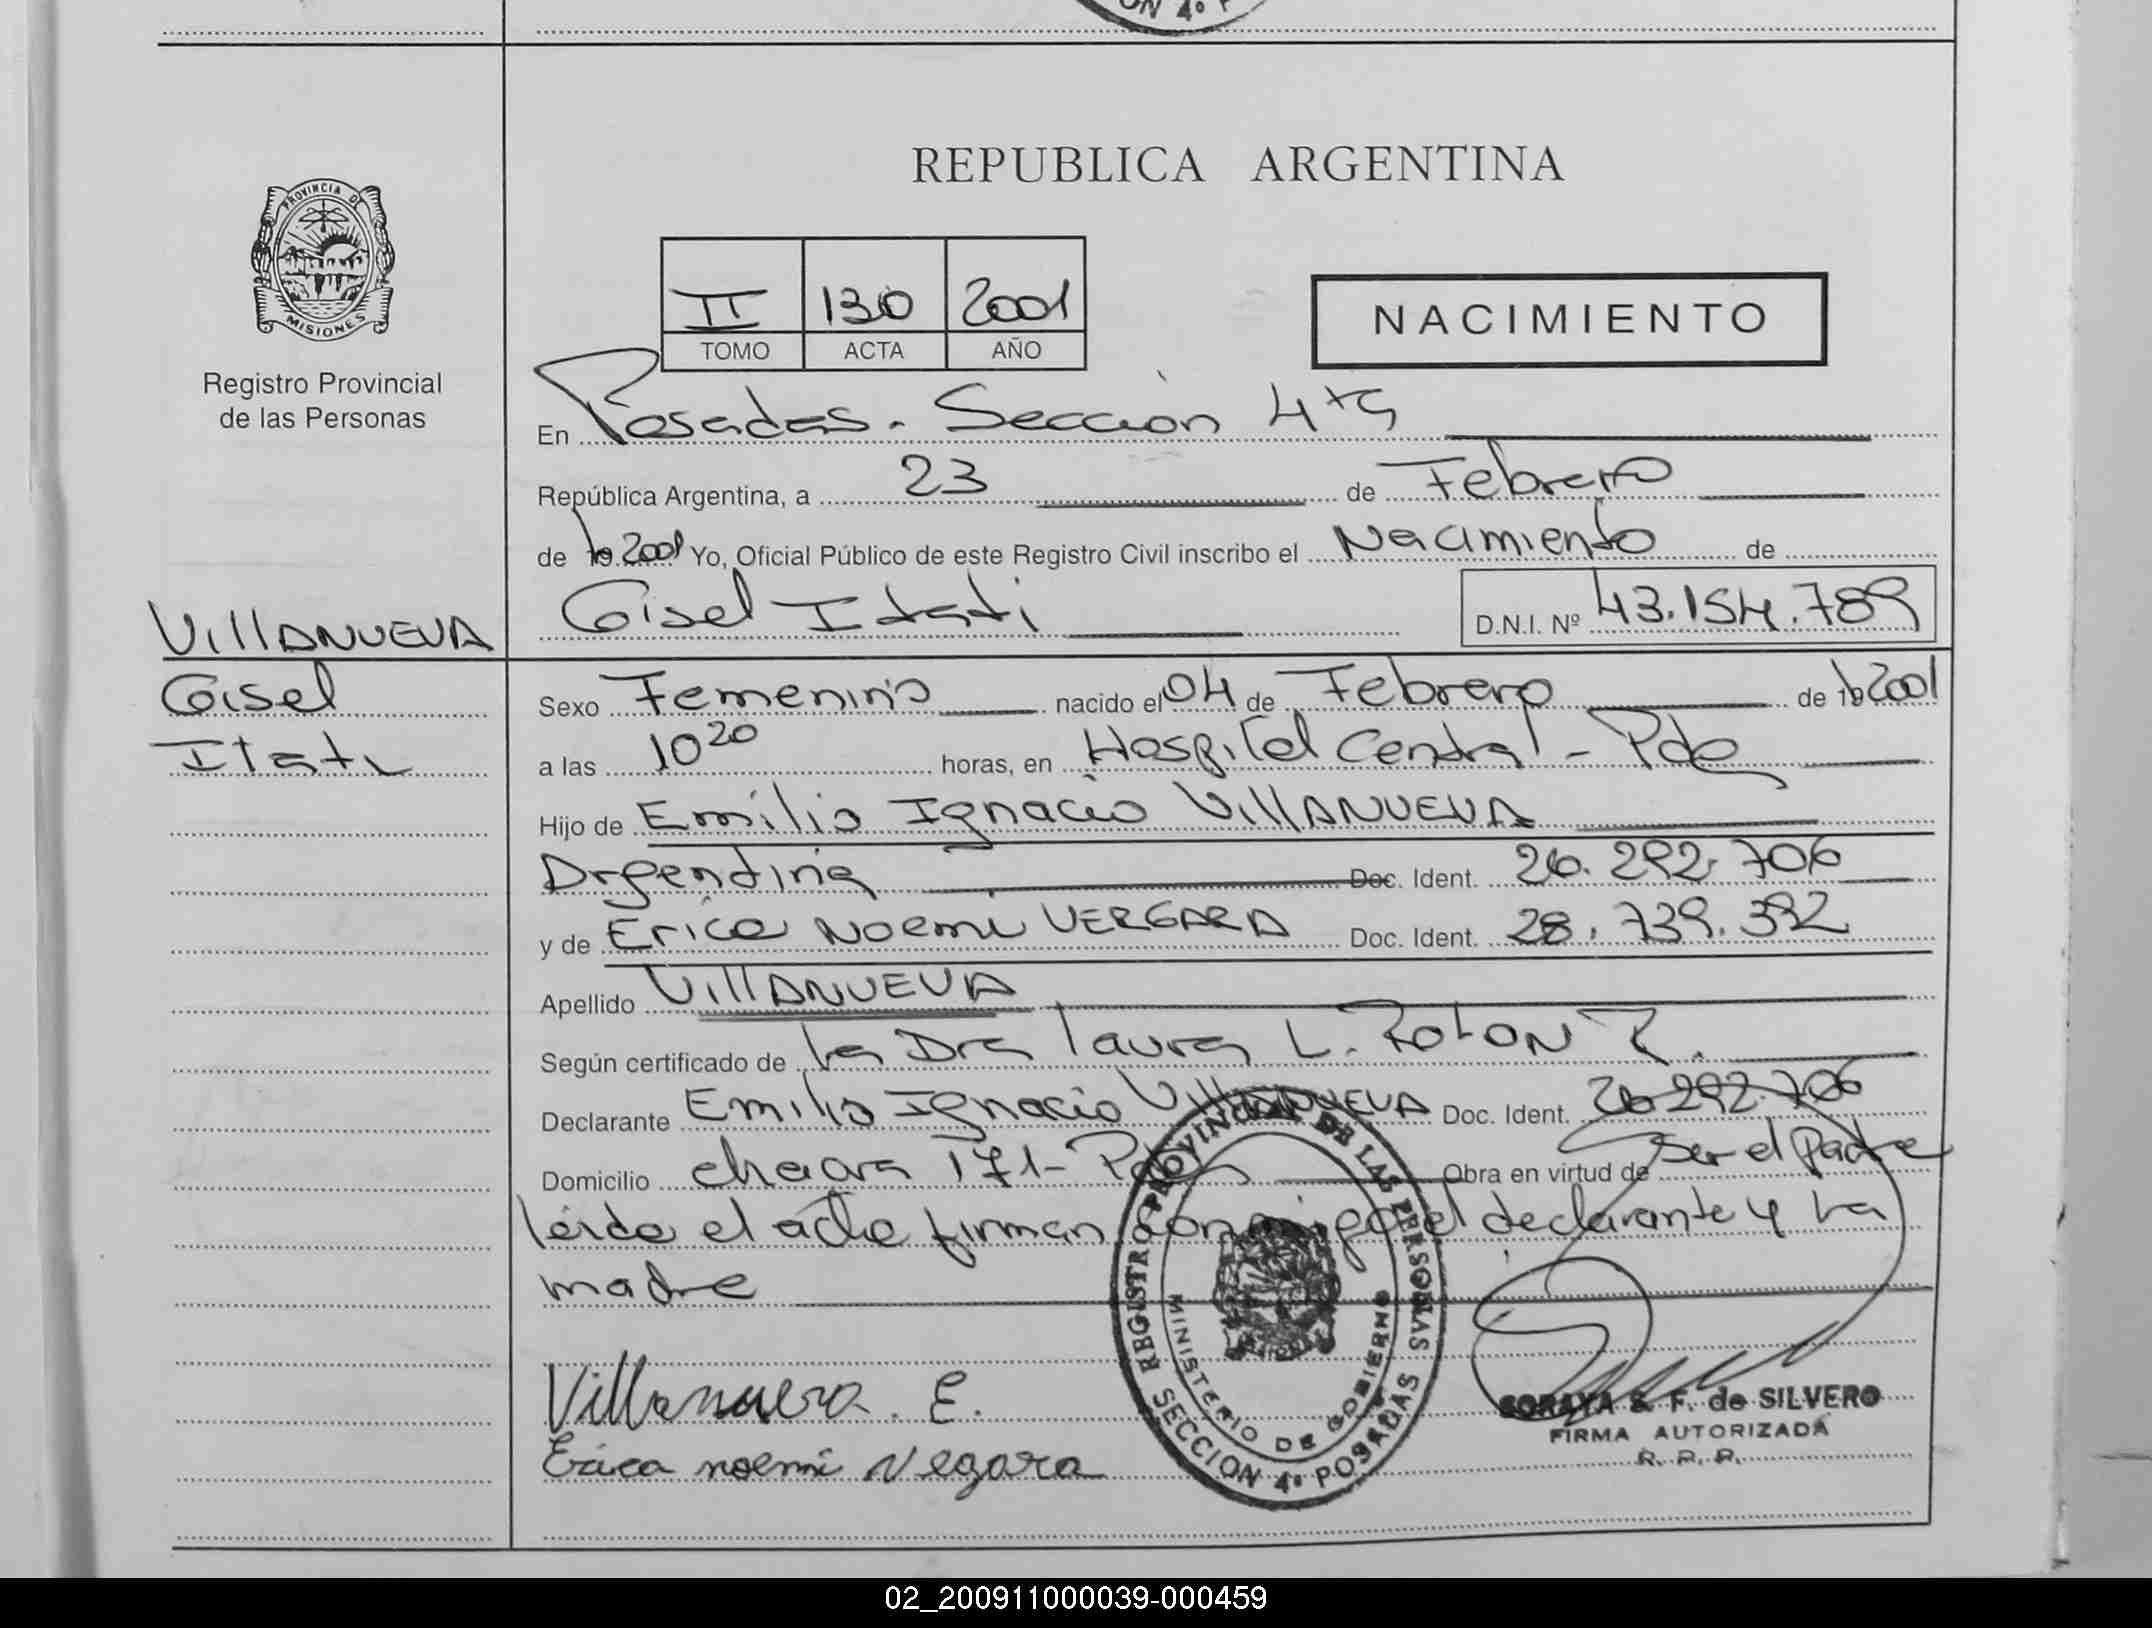 ON 4º P
REPUBLICA ARGENTINA
PROVINCIA DE
MISIONES
Registro Provincial
de las Personas
II 130 2001
TOMO ACTA AÑO
NACIMIENTO
En Posadas. Sección 4ta
República Argentina, a 23 de Febrero
de 19 2001 Yo, Oficial Público de este Registro Civil inscribo el Nacimiento de
Gisel Itati D.N.I. Nº 43.154.789
VillANUEVA
Gisel
Itati
Sexo Femenino nacido el 04 de Febrero de 19 2001
a las 10 20 horas, en Hospital Central - Pdas
Hijo de Emilio Ignacio VillANUEVA
Argentina Doc. Ident. 26.292.706
y de Erica Noemi VERGARA Doc. Ident. 28.739.392
Apellido VillANUEVA
Según certificado de la Dra Laura L. ROLON R.
Declarante Emilio Ignacio VillANUEVA Doc. Ident. 26.292.706
Domicilio chacra 171- Pdas Obra en virtud de ser el Padre
leida el acta firman conmigo el declarante y la
madre
Villanueva. E.
Erica noemi Vegara
REGISTRO PROVINCIAL DE LAS PERSONAS
MINISTERIO DE GOBIERNO
SECCION 4º POSADAS
SORAYA S. F. de SILVERO
FIRMA AUTORIZADA
R. P. P.
02_200911000039-000459